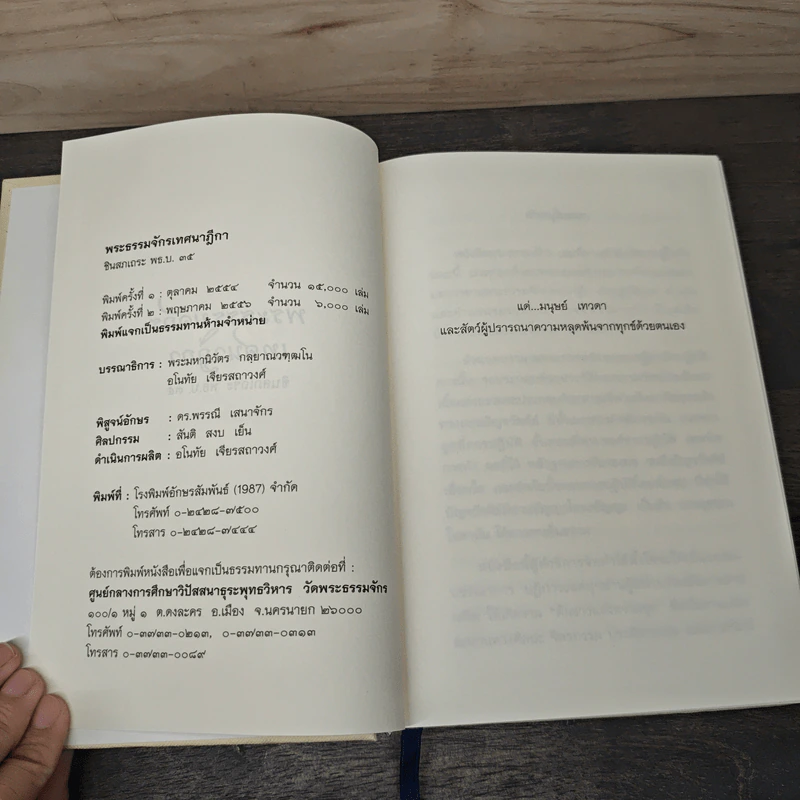 พระธรรมจักรเทศนาฎีกา
ชินสภเถระ พธ.บ. ๓๕
พิมพ์ครั้งที่ ๑ : ตุลาคม ๒๕๕๔ จำนวน ๑๕,๐๐๐ เล่ม
พิมพ์ครั้งที่ ๒ : พฤษภาคม ๒๕๕๖ จำนวน ๖,๐๐๐ เล่ม
พิมพ์แจกเป็นธรรมทานห้ามจำหน่าย
บรรณาธิการ : พระมหานิวัตร กลฺยาณวฑฺฒโน
อโนทัย เจียรสถาวงศ์
พิสูจน์อักษร : ดร.พรรณี เสนาจักร
ศิลปกรรม : สันติ สงบ เย็น
ดำเนินการผลิต : อโนทัย เจียรสถาวงศ์
พิมพ์ที่ : โรงพิมพ์อักษรสัมพันธ์ (1987) จำกัด
โทรศัพท์ ๐-๒๔๒๘-๗๕๐๐
โทรสาร ๐-๒๔๒๘-๗๔๔๔
ต้องการพิมพ์หนังสือเพื่อแจกเป็นธรรมทานกรุณาติดต่อที่ :
ศูนย์กลางการศึกษาวิปัสสนาธุระพุทธวิหาร วัดพระธรรมจักร
๑๐๐/๑ หมู่ ๑ ต.ดงละคร อ.เมือง จ.นครนายก ๒๖๐๐๐
โทรศัพท์ ๐-๓๗๓๓-๐๒๑๓, ๐-๓๗๓๓-๐๓๑๓
โทรสาร ๐-๓๗๓๓-๐๐๘๙
แด่...มนุษย์ เทวดา
และสัตว์ผู้ปรารถนาความหลุดพ้นจากทุกข์ด้วยตนเอง